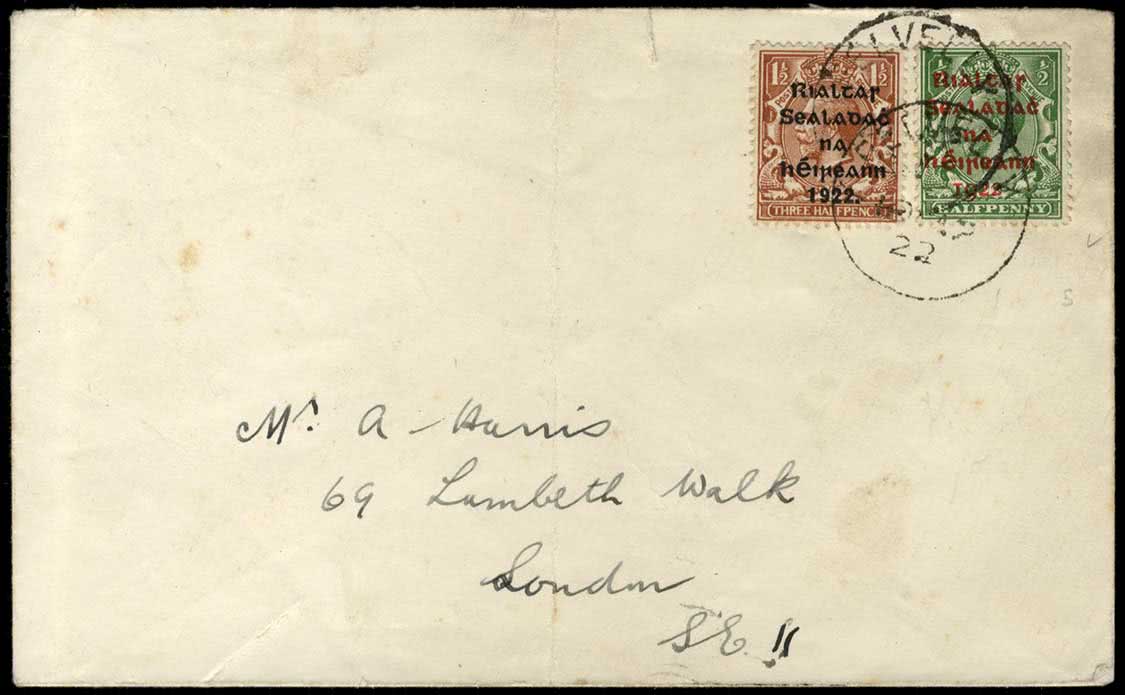 1½ 1½
Rialtas
Sealadaċ
na
hÉireann
1922.
THREE HALFPENCE
½ ½
Rialtas
Sealadaċ
na
hÉireann
1922
HALFPENNY
22
Mr. A Harris
69 Lambeth Walk
London
S.E. 11